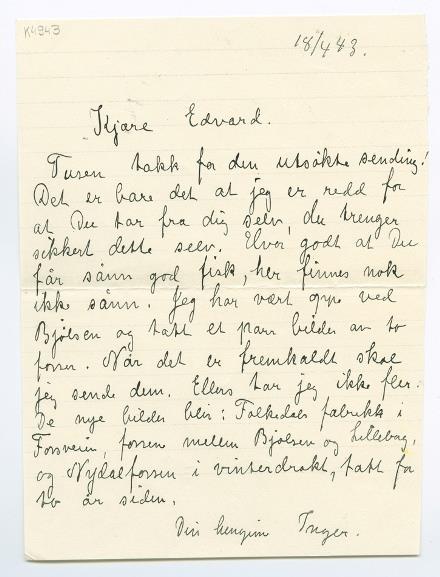 K4943
18/4 43.
Kjære Edvard.
Tusen takk for den utsökte sending!
Det er bare det at jeg er redd for
at Du tar fra dig selv, du trenger
sikkert dette selv. Hvor godt at Du
får sånn god fisk, her finnes nok
ikke sånn. Jeg har vært oppe ved
Bjölsen og tatt et par bilder av to
fosser. Når det er fremkaldt skal
jeg sende dem. Ellers tar jeg ikke fler.
De nye bilder blir: Falkedals fabrikk i
Fossveien, fossen mellem Bjölsen og Lilleborg,
og Nydalsfossen i vinterdrakt, tatt for
to år siden.
Din hengivne Inger.